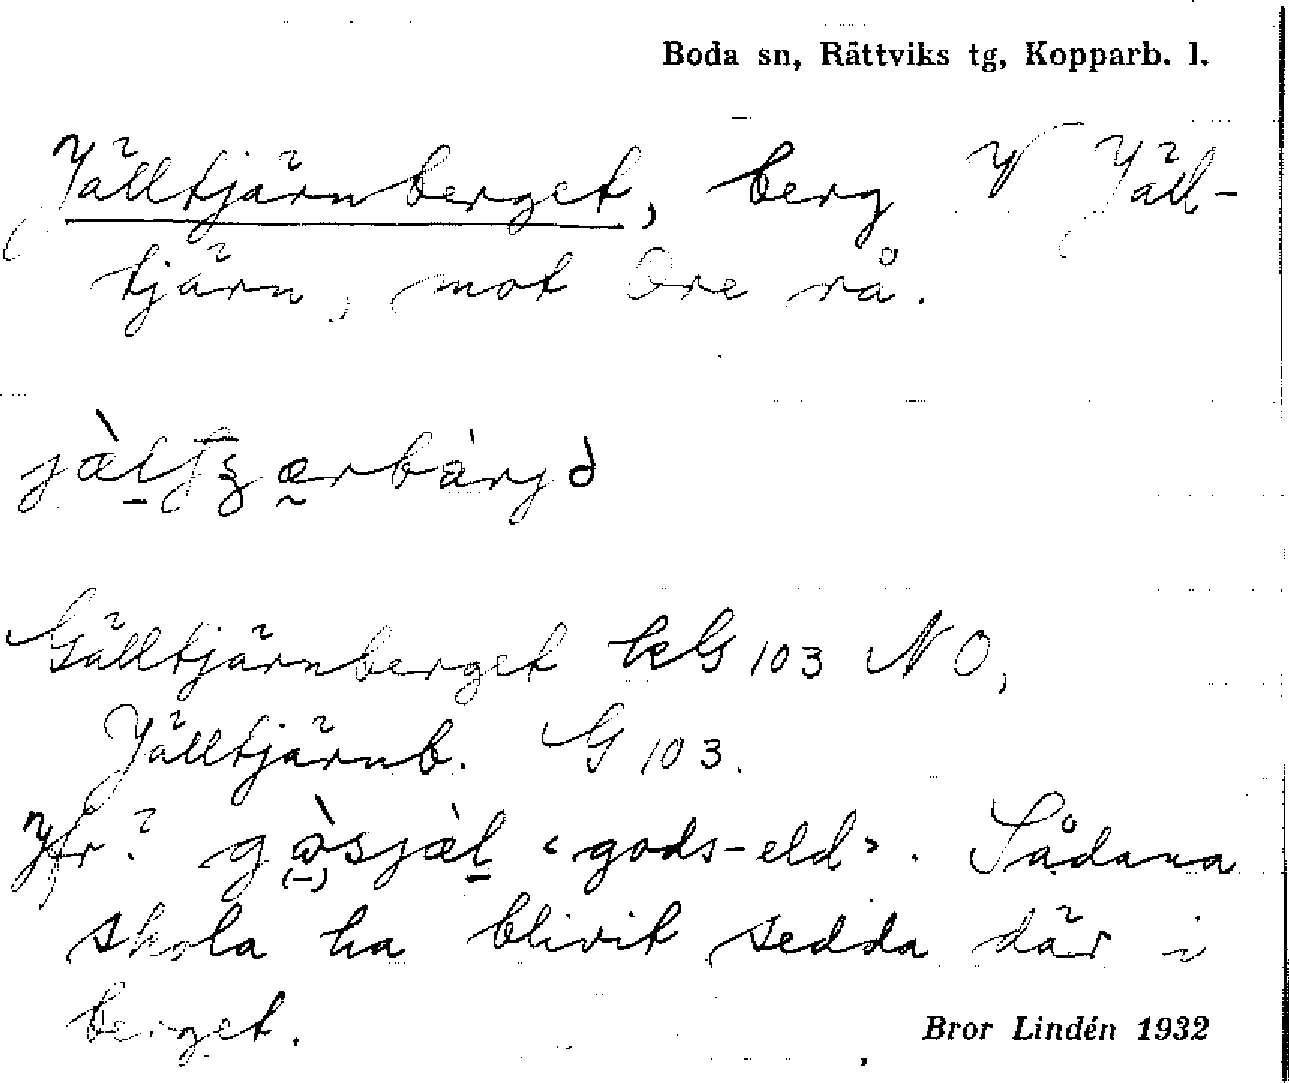 Boda sn, Rättviks tg, Kopparb. l.
Jälltjärnberget, berg V Jäll-
tjärn, mot Ore rå.
Gälltjärnberget kG 103 NO,
Jälltjärnb. G 103.
Jfr? «gods-eld». Sådana
skola ha blivit sedda där i
berget.
Bror Lindén 1932